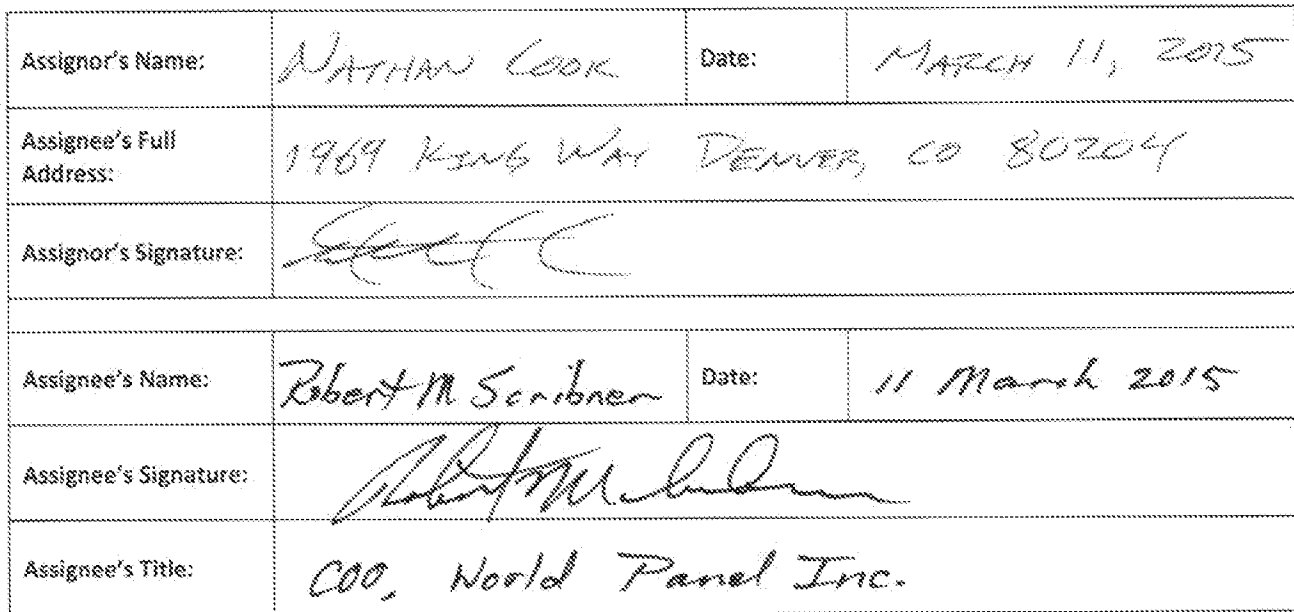 Assignor's Name: NATHAN COOK Date: MARCH 11, 2015
Assignee's Full
Address: 1969 KING WAY DENVER, CO 80204
Assignor's Signature:
Assignee's Name: Robert M Scribner Date: 11 March 2015
Assignee's Signature:
Assignee's Title: COO, World Panel Inc.